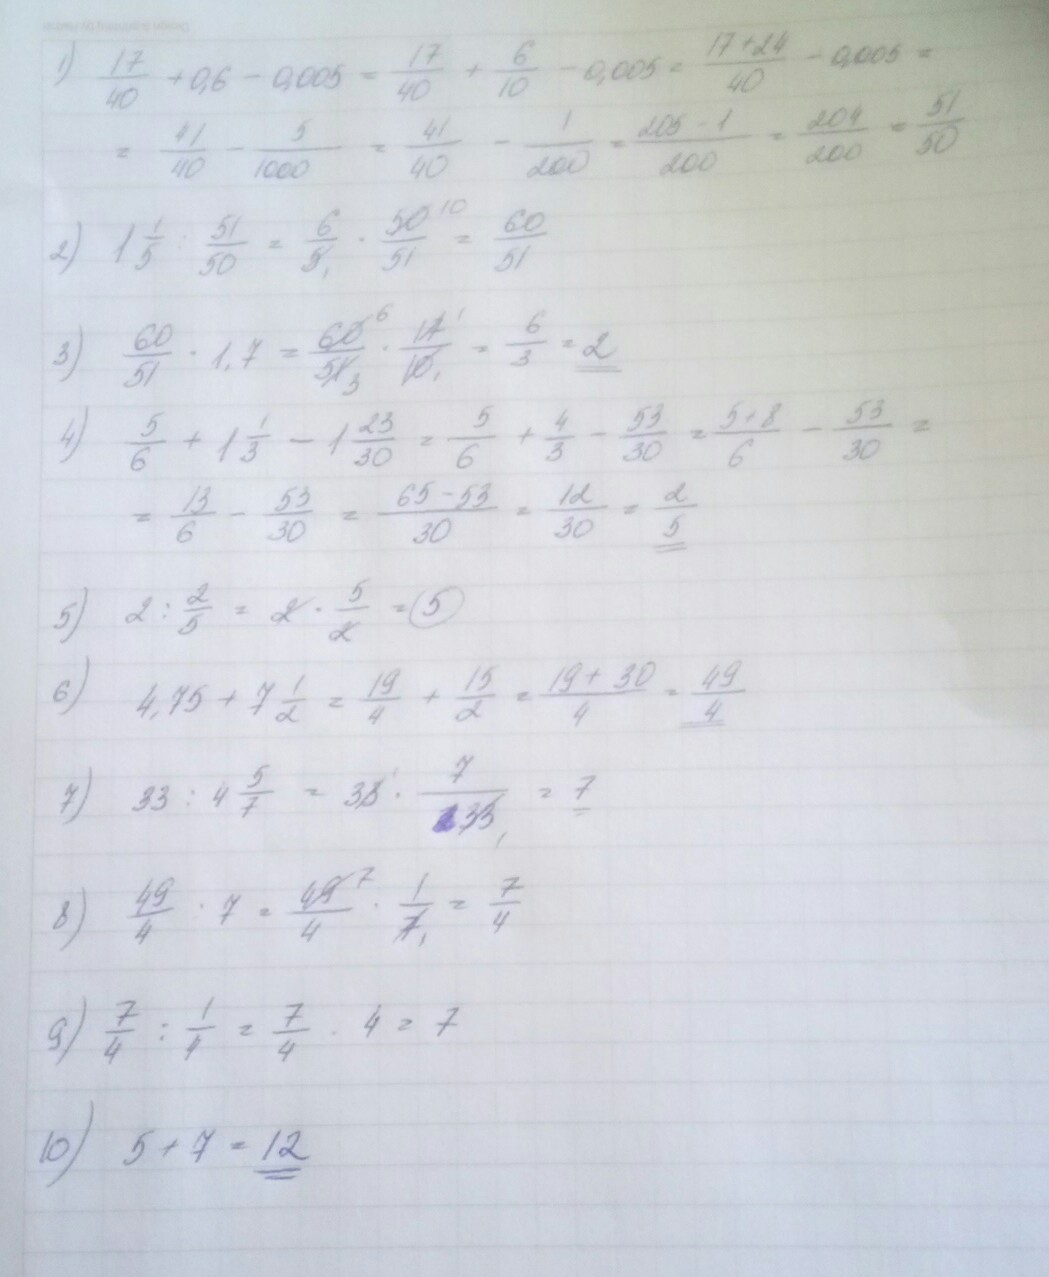 1) 17/40 + 0,6 - 0,005 = 17/40 + 6/10 - 0,005 = (17+24)/40 - 0,005 =
= 41/40 - 5/1000 = 41/40 - 1/200 = (205-1)/200 = 204/200 = 51/50
2) 1 1/5 : 51/50 = 6/5 1 · 50 10/51 = 60/51
3) 60/51 · 1,7 = 60 6/51 3 · 17 1/10 1 = 6/3 = 2
4) 5/6 + 1 1/3 - 1 23/30 = 5/6 + 4/3 - 53/30 = (5+8)/6 - 53/30 =
= 13/6 - 53/30 = (65-53)/30 = 12/30 = 2/5
5) 2 : 2/5 = 2 · 5/2 = 5
6) 4,75 + 7 1/2 = 19/4 + 15/2 = (19+30)/4 = 49/4
7) 33 : 4 5/7 = 33 1 · 7/33 1 = 7
8) 49/4 : 7 = 49 7/4 · 1/7 1 = 7/4
9) 7/4 : 1/4 = 7/4 · 4 = 7
10) 5 + 7 = 12